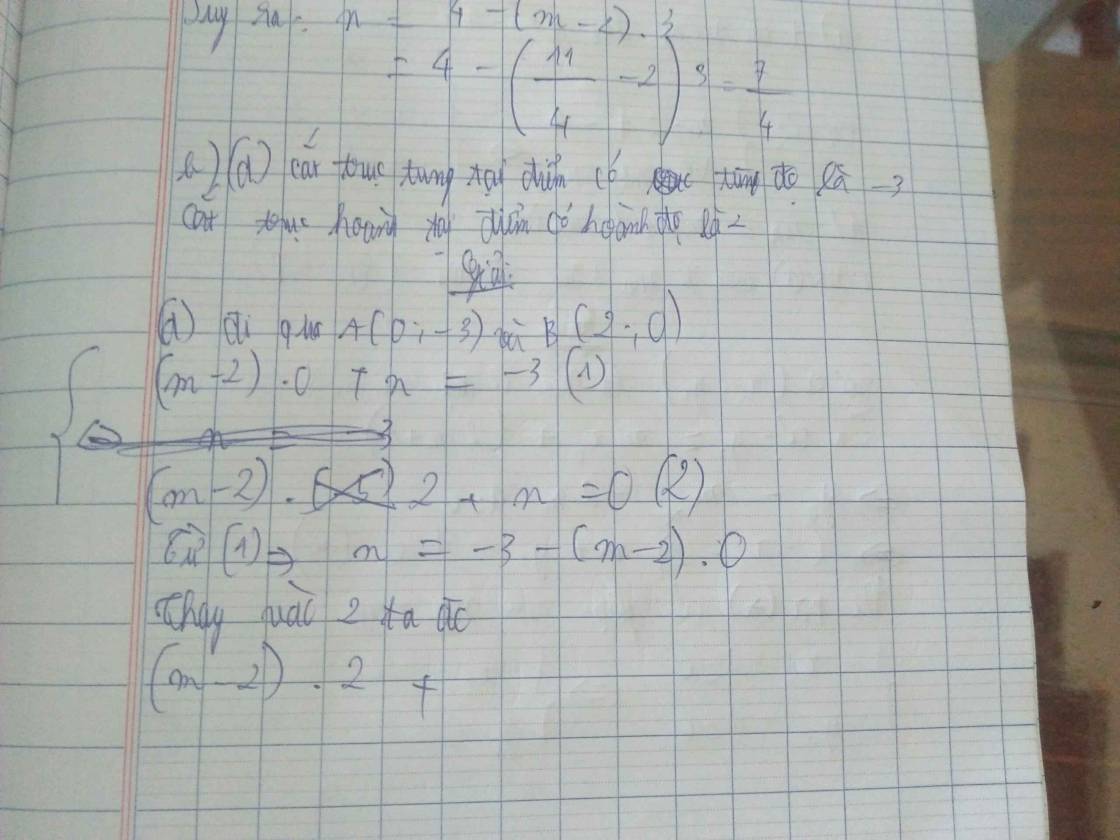 Suy ra: n = 4 - (m-2).3
= 4 - (11/4 - 2) 3 = 7/4
b) (d) cắt trục tung tại điểm có tung độ là -3
cắt trục hoành tại điểm có hoành độ là 2
Giải:
(d) đi qua A(0;-3) và B (2;0)
(m-2).0 + n = -3 (1)
(m-2). 2 + n = 0 (2)
Từ (1) => n = -3 - (m-2).0
Thay vào 2 ta đc
(m-2).2 +